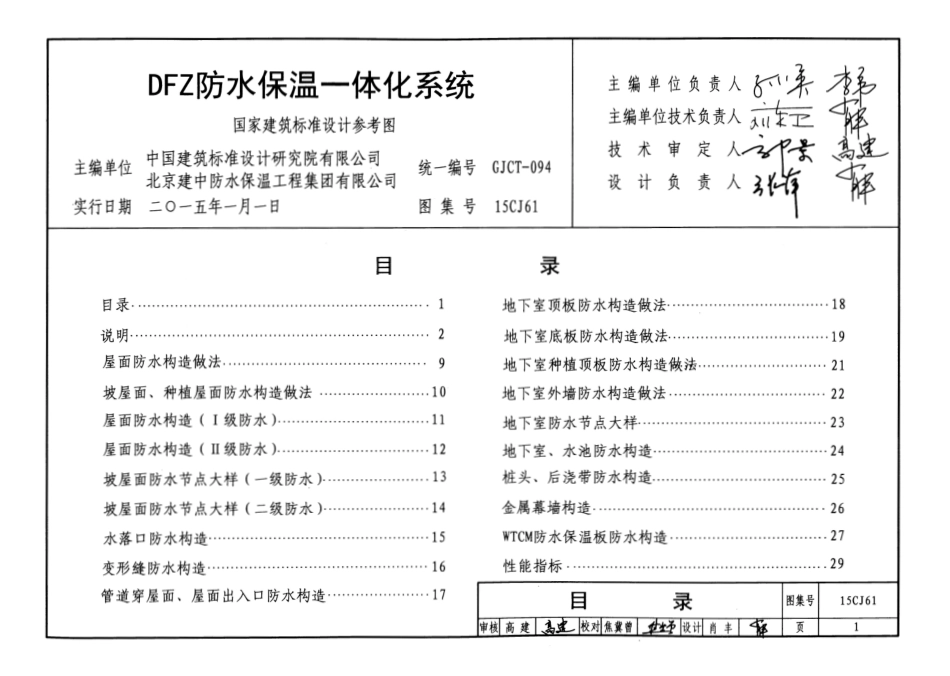 DFZ防水保温一体化系统
国家建筑标准设计参考图
主编单位 中国建筑标准设计研究院有限公司
北京建中防水保温工程集团有限公司
统一编号 GJCT-094
实行日期 二〇一五年一月一日
图集号 15CJ61
主编单位负责人
主编单位技术负责人
技术审定人
设计负责人
目录
目录 1
说明 2
屋面防水构造做法 9
坡屋面、种植屋面防水构造做法 10
屋面防水构造(Ⅰ级防水) 11
屋面防水构造(Ⅱ级防水) 12
坡屋面防水节点大样(一级防水) 13
坡屋面防水节点大样(二级防水) 14
水落口防水构造 15
变形缝防水构造 16
管道穿屋面、屋面出入口防水构造 17
地下室顶板防水构造做法 18
地下室底板防水构造做法 19
地下室种植顶板防水构造做法 21
地下室外墙防水构造做法 22
地下室防水节点大样 23
地下室、水池防水构造 24
桩头、后浇带防水构造 25
金属幕墙构造 26
WTCM防水保温板防水构造 27
性能指标 29
目录 图集号 15CJ61
审核 高建 高建 校对 焦冀曾 设计 肖丰 页 1